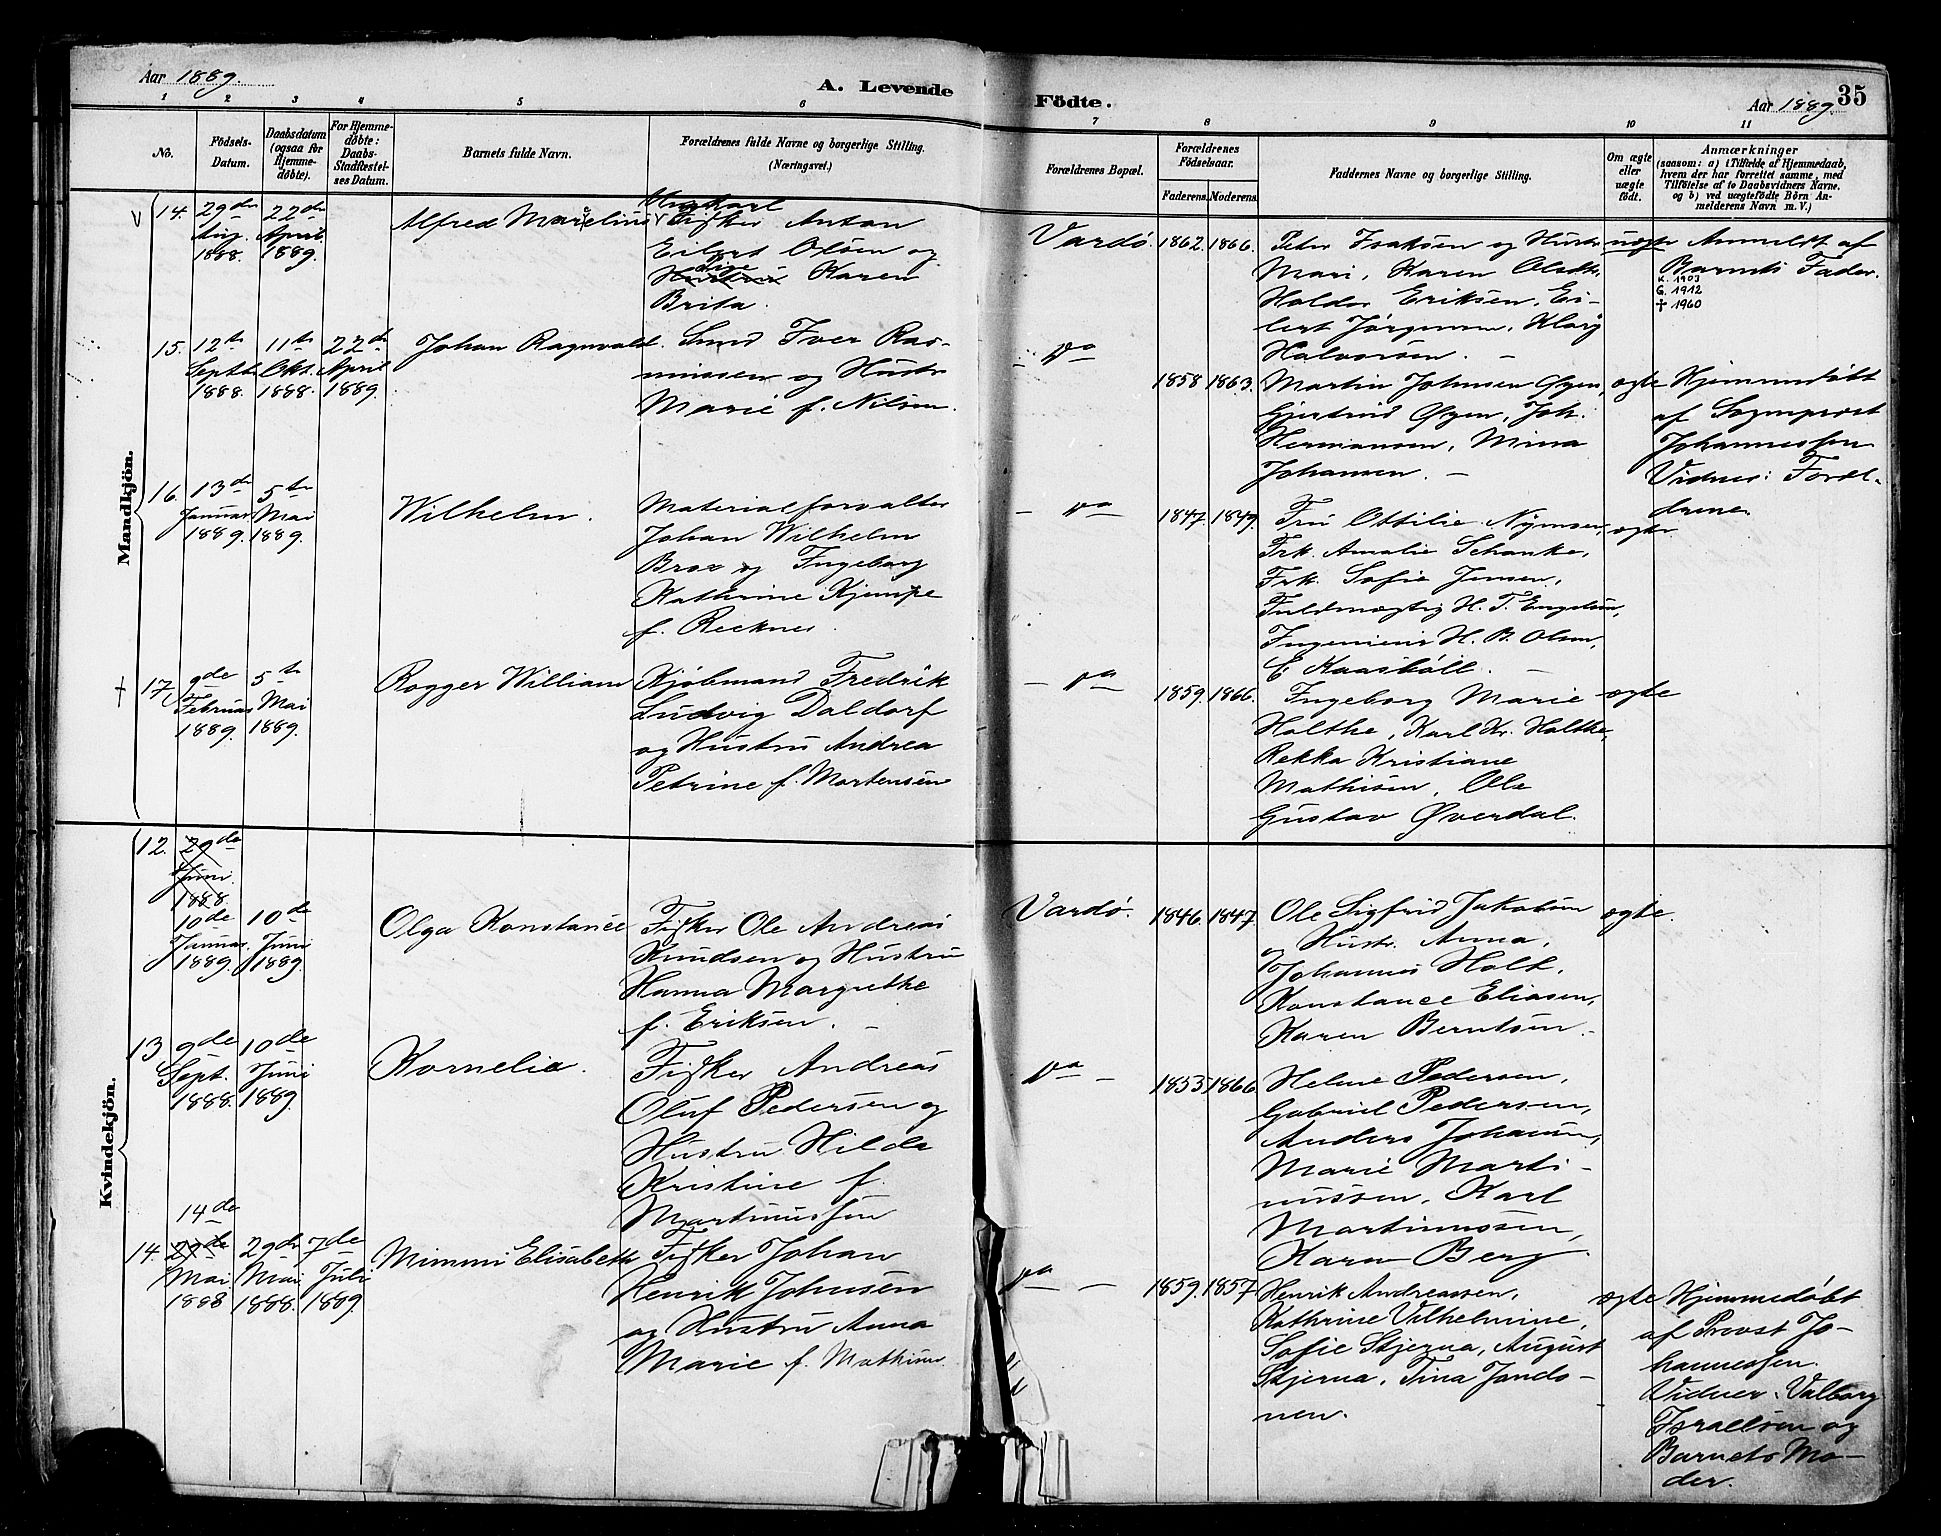 Aar 1889.
A. Levende Födte.
Aar 1889. 35
1 2 3 4 5 6 7 8 9 10 11
No.
Födsels-Datum.
Daabsdatum (ogsaa for Hjemmedöbte).
For Hjemmedöbte: Daabs-Stadfæstelses Datum.
Barnets fulde Navn.
Forældrenes fulde Navne og borgerlige Stilling. (Næringsvei.)
Forældrenes Bopæl.
Forældrenes Födselsaar.
Faderens. Moderens.
Faddernes Navne og borgerlige Stilling.
Om ægte eller uægte födt.
Anmærkninger
(saasom: a) i Tilfælde af Hjemmedaab,
hvem der har forrettet samme, med
Tilföielse af to Daabsvidners Navne.
og b) ved uægtefödte Börn Anmelderens Navn m. V.)
Mandkjön.
14.
29de
Aug.
1888.
22de
April
1889.
Alfred Marelius
Ungkarl
Fisker Anton
Eilert Olsen og
Pige Karen
Brita.
Vardø.
1862. 1866.
Peter Isaksen og Hustr.
Mari, Karen Olsdtr.
Haldor Eriksen, Ei-
lert Jørgensen, Klara
Halvorsen. –
uægte
Anmeldt af
Barnets Fader.
K. 1903
G. 1912
† 1960
15.
12te
Septbr
1888.
11te
Okt.
1888.
22de
April
1889.
Johan Ragnvald.
Smed Iver Ras-
mussen og Hustr
Marie f. Nilsen.
– Do
1858 1863.
Martin Johnsen Øyen,
Gjertrud Øyen, Joh.
Hermansen, Mina
Johansen. –
ægte
Hjemmedøbt
af Sogneprest
Johannessen
Vidner: Foræl-
drene.
16.
13de
Januar
1889.
5te
Mai
1889.
Wilhelm.
Materialforvalter
Johan Wilhelm
Brox og Ingeborg
Kathrine Kjempe
f. Recknes.
– Do
1847. 1849.
Fru Ottilie Nymsen,
Frk. Amalie Schanke,
Frk. Sofie Jensen,
Fuldmægtig H. T. Engelsen,
Ingenieur H. B. Olsen,
E. Kaasbøll. –
ægte
17.
9de
Februar
1889.
5te
Mai
1889.
Rogger William
Kjøbmand Fredrik
Ludvig Daldorf
og Hustru Andrea
Petrine f. Mortensen
– Do
1859. 1866.
Ingeborg Marie
Holthe, Karl Kr. Holthe,
Rekka Kristiane
Mathisen, Ole
Gustav Øverdal.
ægte
Kvindekjön.
12.
29de
Juni
1888.
10de
Januar
1889.
10de
Juni
1889.
Olga Konstance
Fisker Ole Andreas
Knudsen og Hustru
Hanna Margrethe
f. Eriksen. –
Vardø.
1846. 1847.
Ole Sigfrid Jakobsen
og Hustr. Anna,
Johannes Holt,
Konstance Eliasen,
Karen Berntsen.
ægte.
13.
9de
Sept.
1888.
10de
Juni
1889.
Kornelia.
Fisker Andreas
Oluf Pedersen og
Hustru Hilda
Kristine f.
Martinussen
Do –
1853 1866
Helene Pedersen,
Gabriel Pedersen,
Anders Johansen,
Marie Marti-
nussen, Karl
Martinussen,
Karen Berg.
14.
14de
29de
Mai
1888
29de
Mai
1888.
7de
Juli
1889.
Mimmi Elisabeth
Fisker Johan
Henrik Johnsen
og Hustru Anna
Marie f. Mathisen
Do –
1859. 1857
Henrik Andreassen,
Kathrine Vilhelmine,
Sofie Stjerna, August
Stjerna, Tina Jando-
nen.
ægte
Hjemmedøbt
af Provst Jo-
hannessen.
Vidner. Valborg
Israelsen og
Barnets Mo-
der.